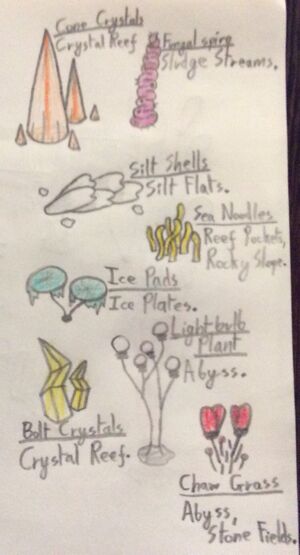 Cone Crystals
Crystal Reef
Fungal spire
Sludge Streams.
Silt Shells
Silt Flats.
Sea Noodles
Reef Pockets,
Rocky Slope.
Ice Pads
Ice Plates.
Lightbulb
Plant
Abyss.
Bolt Crystals
Crystal Reef.
Chaw Grass
Abyss,
Stone Fields.